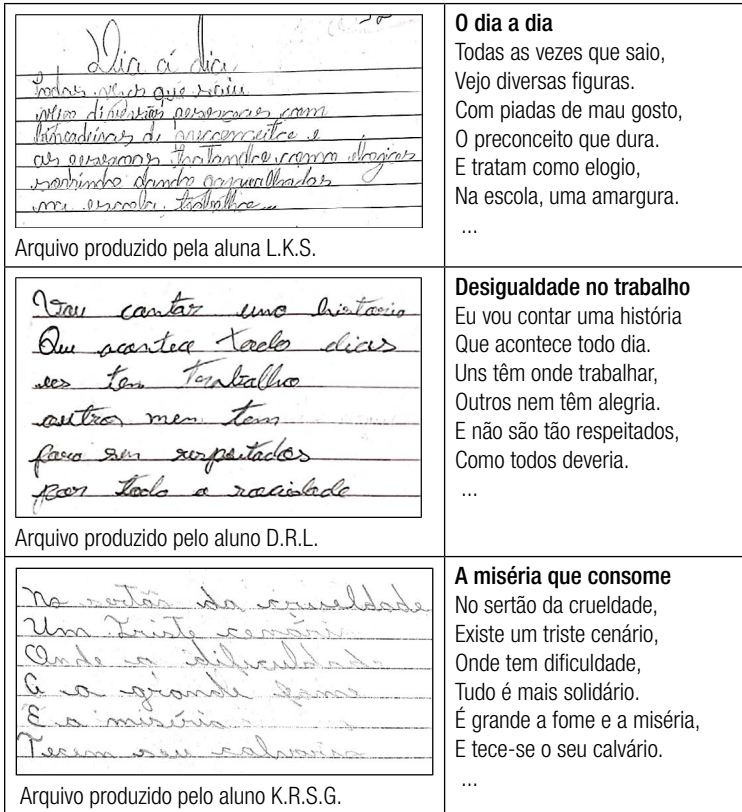 Dia á dia
todas vezes que saiu
vejo diversas pessoas com
brincadeiras de preconceito e
as pessoas tratando como elogios
sorrindo dando gargalhadas
na escola, trabalho...
Arquivo produzido pela aluna L.K.S.
O dia a dia
Todas as vezes que saio,
Vejo diversas figuras.
Com piadas de mau gosto,
O preconceito que dura.
E tratam como elogio,
Na escola, uma amargura.
...
Vou contar uma historia
Que acontece todo dias
tem Trabalho
outros nem tem
para ser respeitados
por toda a sociedade
Arquivo produzido pelo aluno D.R.L.
Desigualdade no trabalho
Eu vou contar uma história
Que acontece todo dia.
Uns têm onde trabalhar,
Outros nem têm alegria.
E não são tão respeitados,
Como todos deveria.
...
No sertão da crueldade
Um Triste cenário
Onde a dificuldade
E a grande fome
E a miséria
Tecem seu calvario
Arquivo produzido pelo aluno K.R.S.G.
A miséria que consome
No sertão da crueldade,
Existe um triste cenário,
Onde tem dificuldade,
Tudo é mais solidário.
É grande a fome e a miséria,
E tece-se o seu calvário.
...